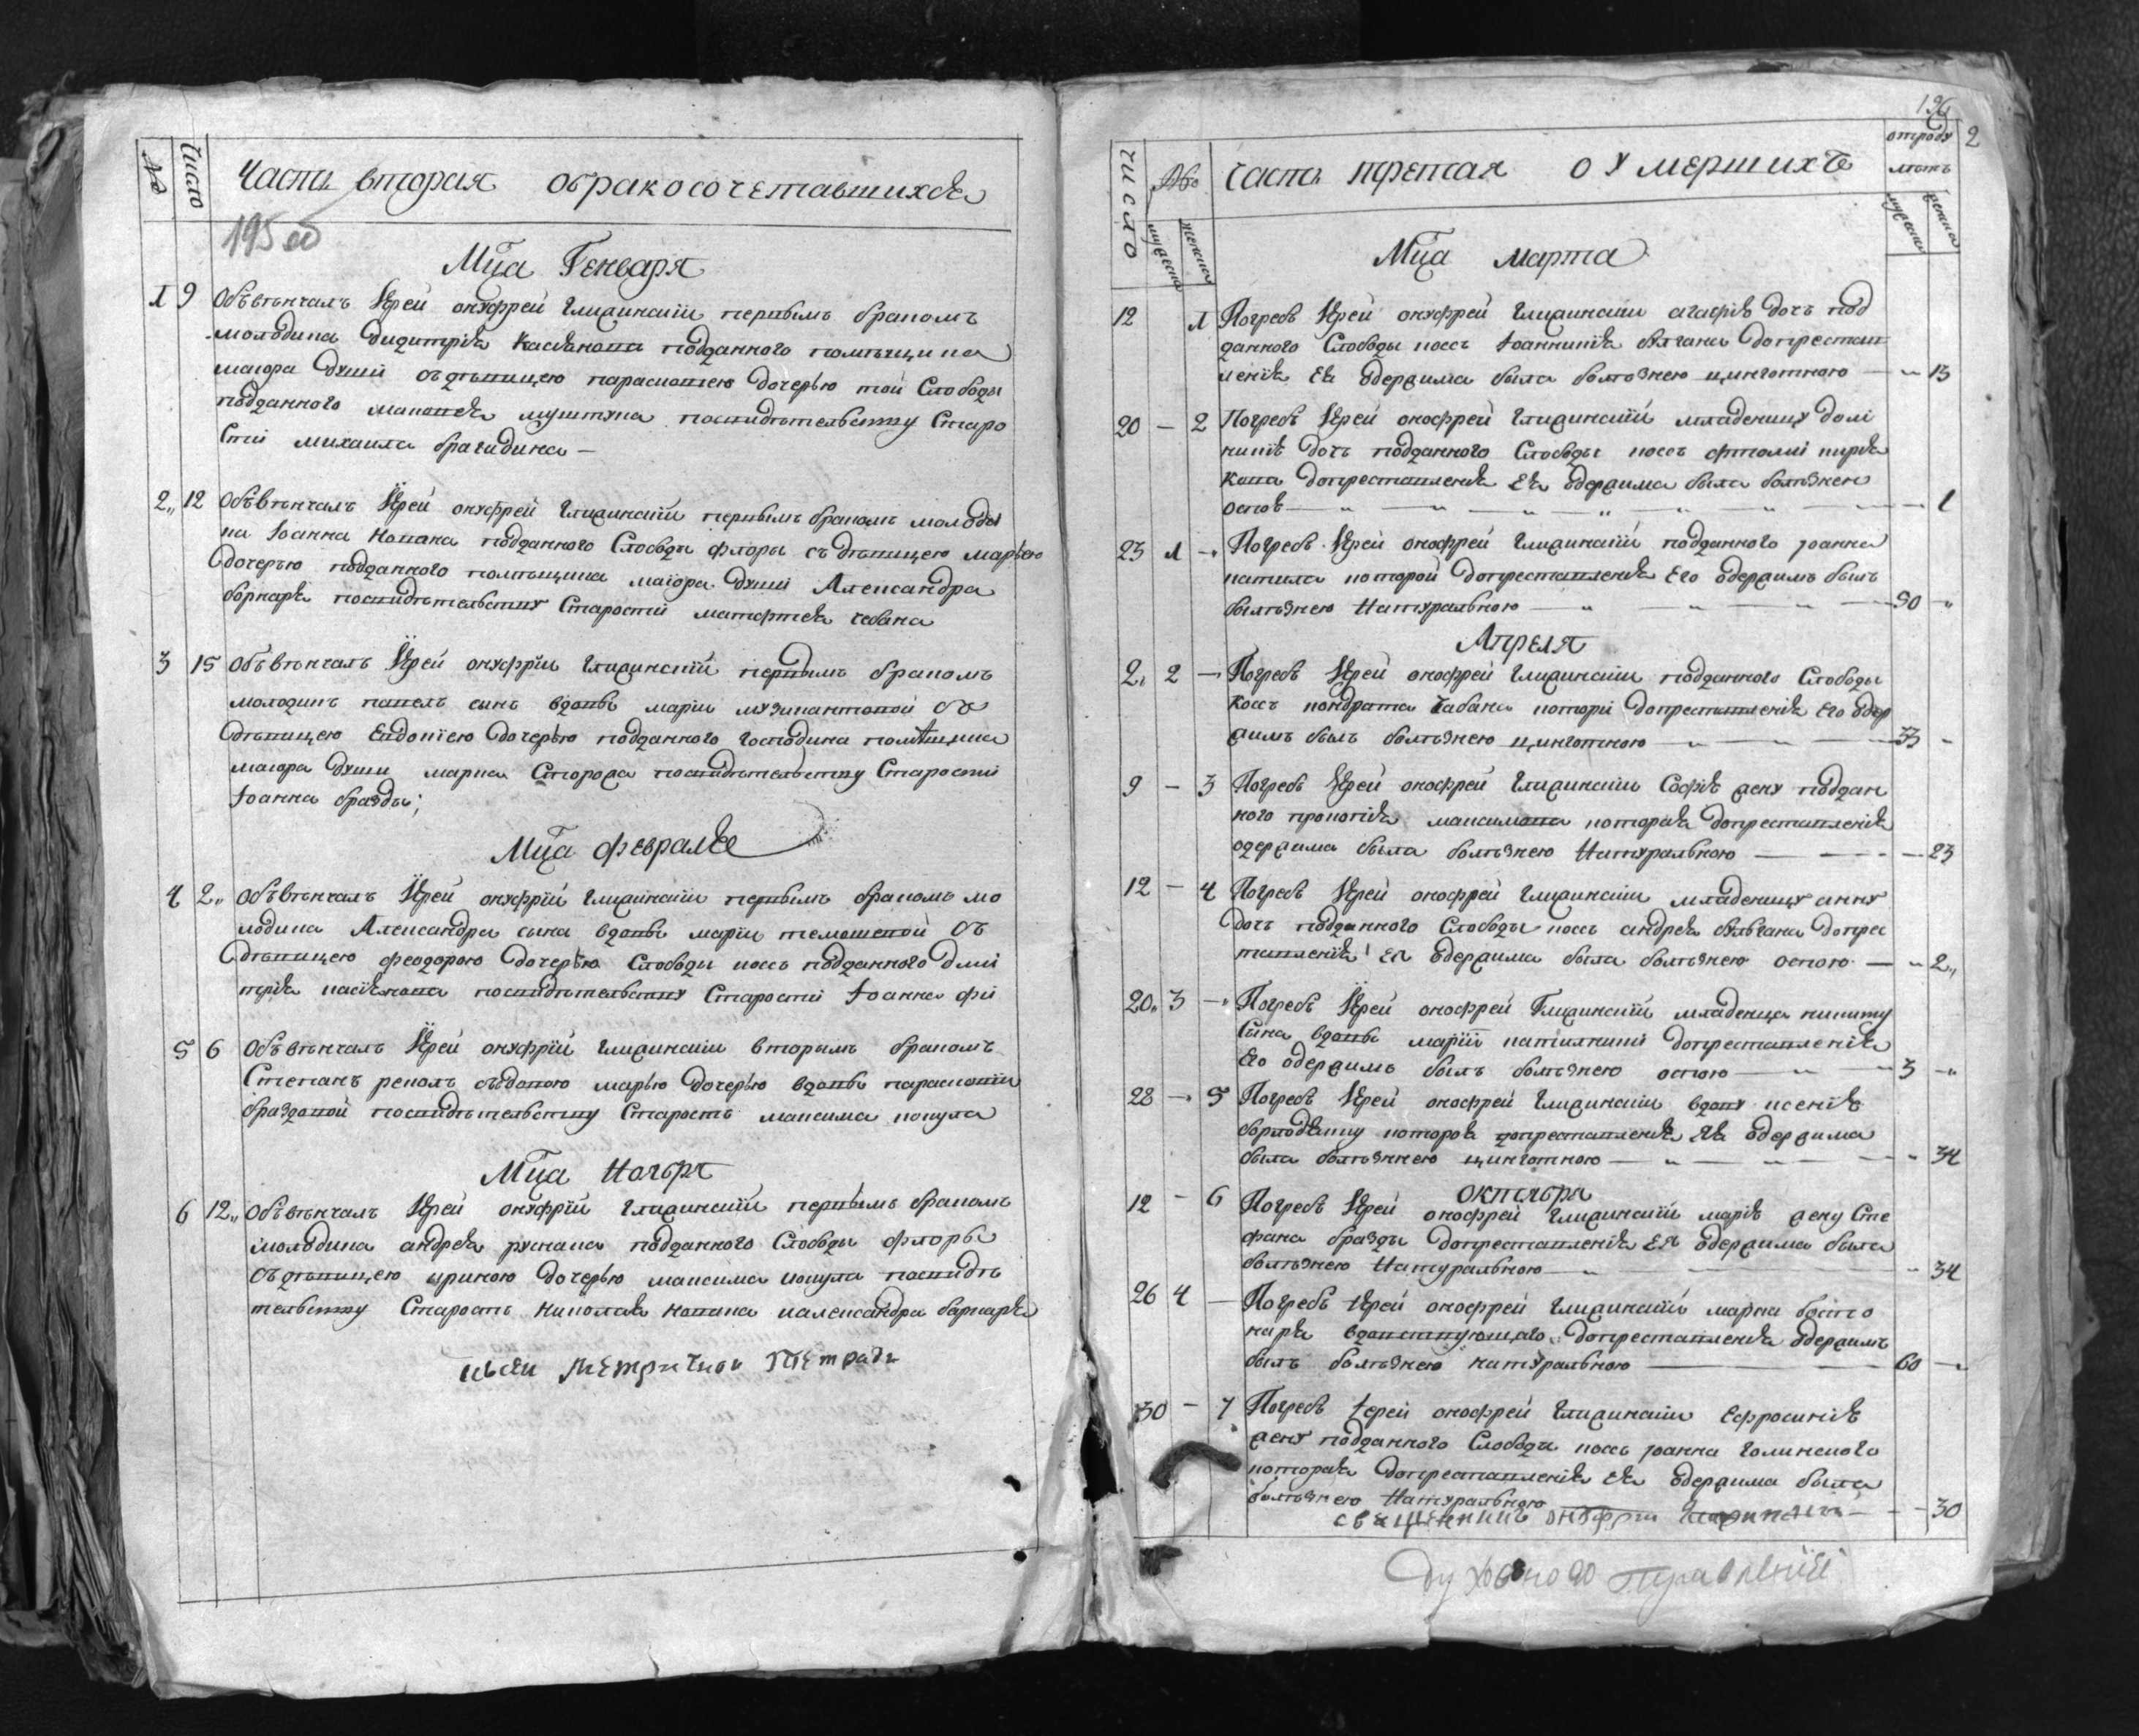 № Число Часть вторая о бракосочетавшихся
195 об
Мца Генваря
1 9 Объвѣнчалъ Іерей онуфрей Глижинскій первымъ бракомъ
молодика Димитрія Касіянова подданного помѣщика
маіора Души съ дѣвицею парасковіею дочерью той Слободы
подданного маковея мунтяна по свидѣтельству Старо
сти михаила
2 12 Объвѣнчалъ Іерей онуфрей Глижинскій первымъ бракомъ молоди
ка Іоанна Копака подданного Слободы флоры съ дѣвицею марьею
дочерью подданного помѣщика маіора Души Александра
борнаря по свидѣтельству Старости матфтея чебана
3 15 Объвѣнчалъ Іерей онуфрій Глижинскій первымъ бракомъ
молодикъ павелъ сынъ вдовы маріи музикантовой съ
дѣвицею Евдокіею дочерью подданного господина помѣщика
маіора Души марка Сторожа по свидѣтельству Старости
Іоанна бразды;
Мца февраля
4 2 объвѣнчалъ Іерей онуфрій Глижинскій первымъ бракомъ мо
лодика Александра сына вдовы маріи съ
дѣвицею феодорою дочерью Слободы косъ подданного Дми
трія касіянова по свидѣтельству Старости Іоанна фи
5 6 Объвѣнчалъ Іерей онуфрій Глижинскій вторымъ бракомъ
Степанъ репалъ съ вдовою марью дочерью вдовы парасковіи
браздовой по свидѣтельству Старость максима кокула
Мца Ноября
6 12 объвѣнчалъ Іерей онуфрій Глижинскій первымъ бракомъ
молодика андрея руснака подданного Слободы флоры
съ дѣвицею ириною дочерью максима кокула по свидѣ
тельству Старость николая копака и александра борнаря
къ сей метричной Тетради
196
2
число № мужеска женска Часть третая о умершихъ отроду лѣтъ мужеска женска
Мца марта
12 1 Погребъ Іерей онуфрей Глижинскій агафію дочь под
данного Слободы косъ Іоанникія до престав
ленія Ея одержима была болѣзнею цинготною — 13
20 — 2 Погребъ Іерей онофрей Глижинскій младеницу домі
никію дочь подданного Слободы косъ
кова до преставленія Ея одержима была болѣзнею
оспою — 1
23 1 — Погребъ Іерей онофрей Глижинскій подданного Іоанна
которой до преставленія Его одержимъ былъ
болѣзнею Натуральною — 50 —
Апреля
2 2 — Погребъ Іерей онофрей Глижинскій подданного Слободы
косъ кондрата чабана которій до преставленія Его одер
жимъ былъ болѣзнею цинготною — 33 —
9 — 3 Погребъ Іерей онофрей Глижинскій Софію жену поддан
ного прокопія максимова которая до преставленія
одержима была болѣзнею Натуральною — 23
12 — 4 Погребъ Іерей онофрей Глижинскій младеницу анну
дочь подданного Слободы косъ андрея до прес
тавленія Ея одержима была болѣзнею оспою — 2
20 3 — Погребъ Іерей онофрей Глижинскій младенца никиту
Сына вдовы маріи до преставленія
Его одержимъ былъ болѣзнею оспою — 3 —
28 — 5 Погребъ Іерей онофрей Глижинскій вдову ксенію
которою до преставленія Ея одержима
была болѣзнею цинготною — 34
октября
12 — 6 Погребъ Іерей онофрей Глижинскій марію жену Сте
фана бразды до преставленія Ея одержима была
болѣзнею Натуральною — 34
26 4 — Погребъ Іерей онофрей Глижинскій марка
наря вдовствующаго до преставленія одержимъ
былъ болѣзнею натуральною — 60 —
30 — 7 Погребъ Іерей онофрей Глижинскій Ефросинію
жену подданного Слободы косъ Іоанна голинского
которая до преставленія Ея одержима была
болѣзнею Натуральною — 30
священникъ онуфрій Глижинскій
Духовного правленія